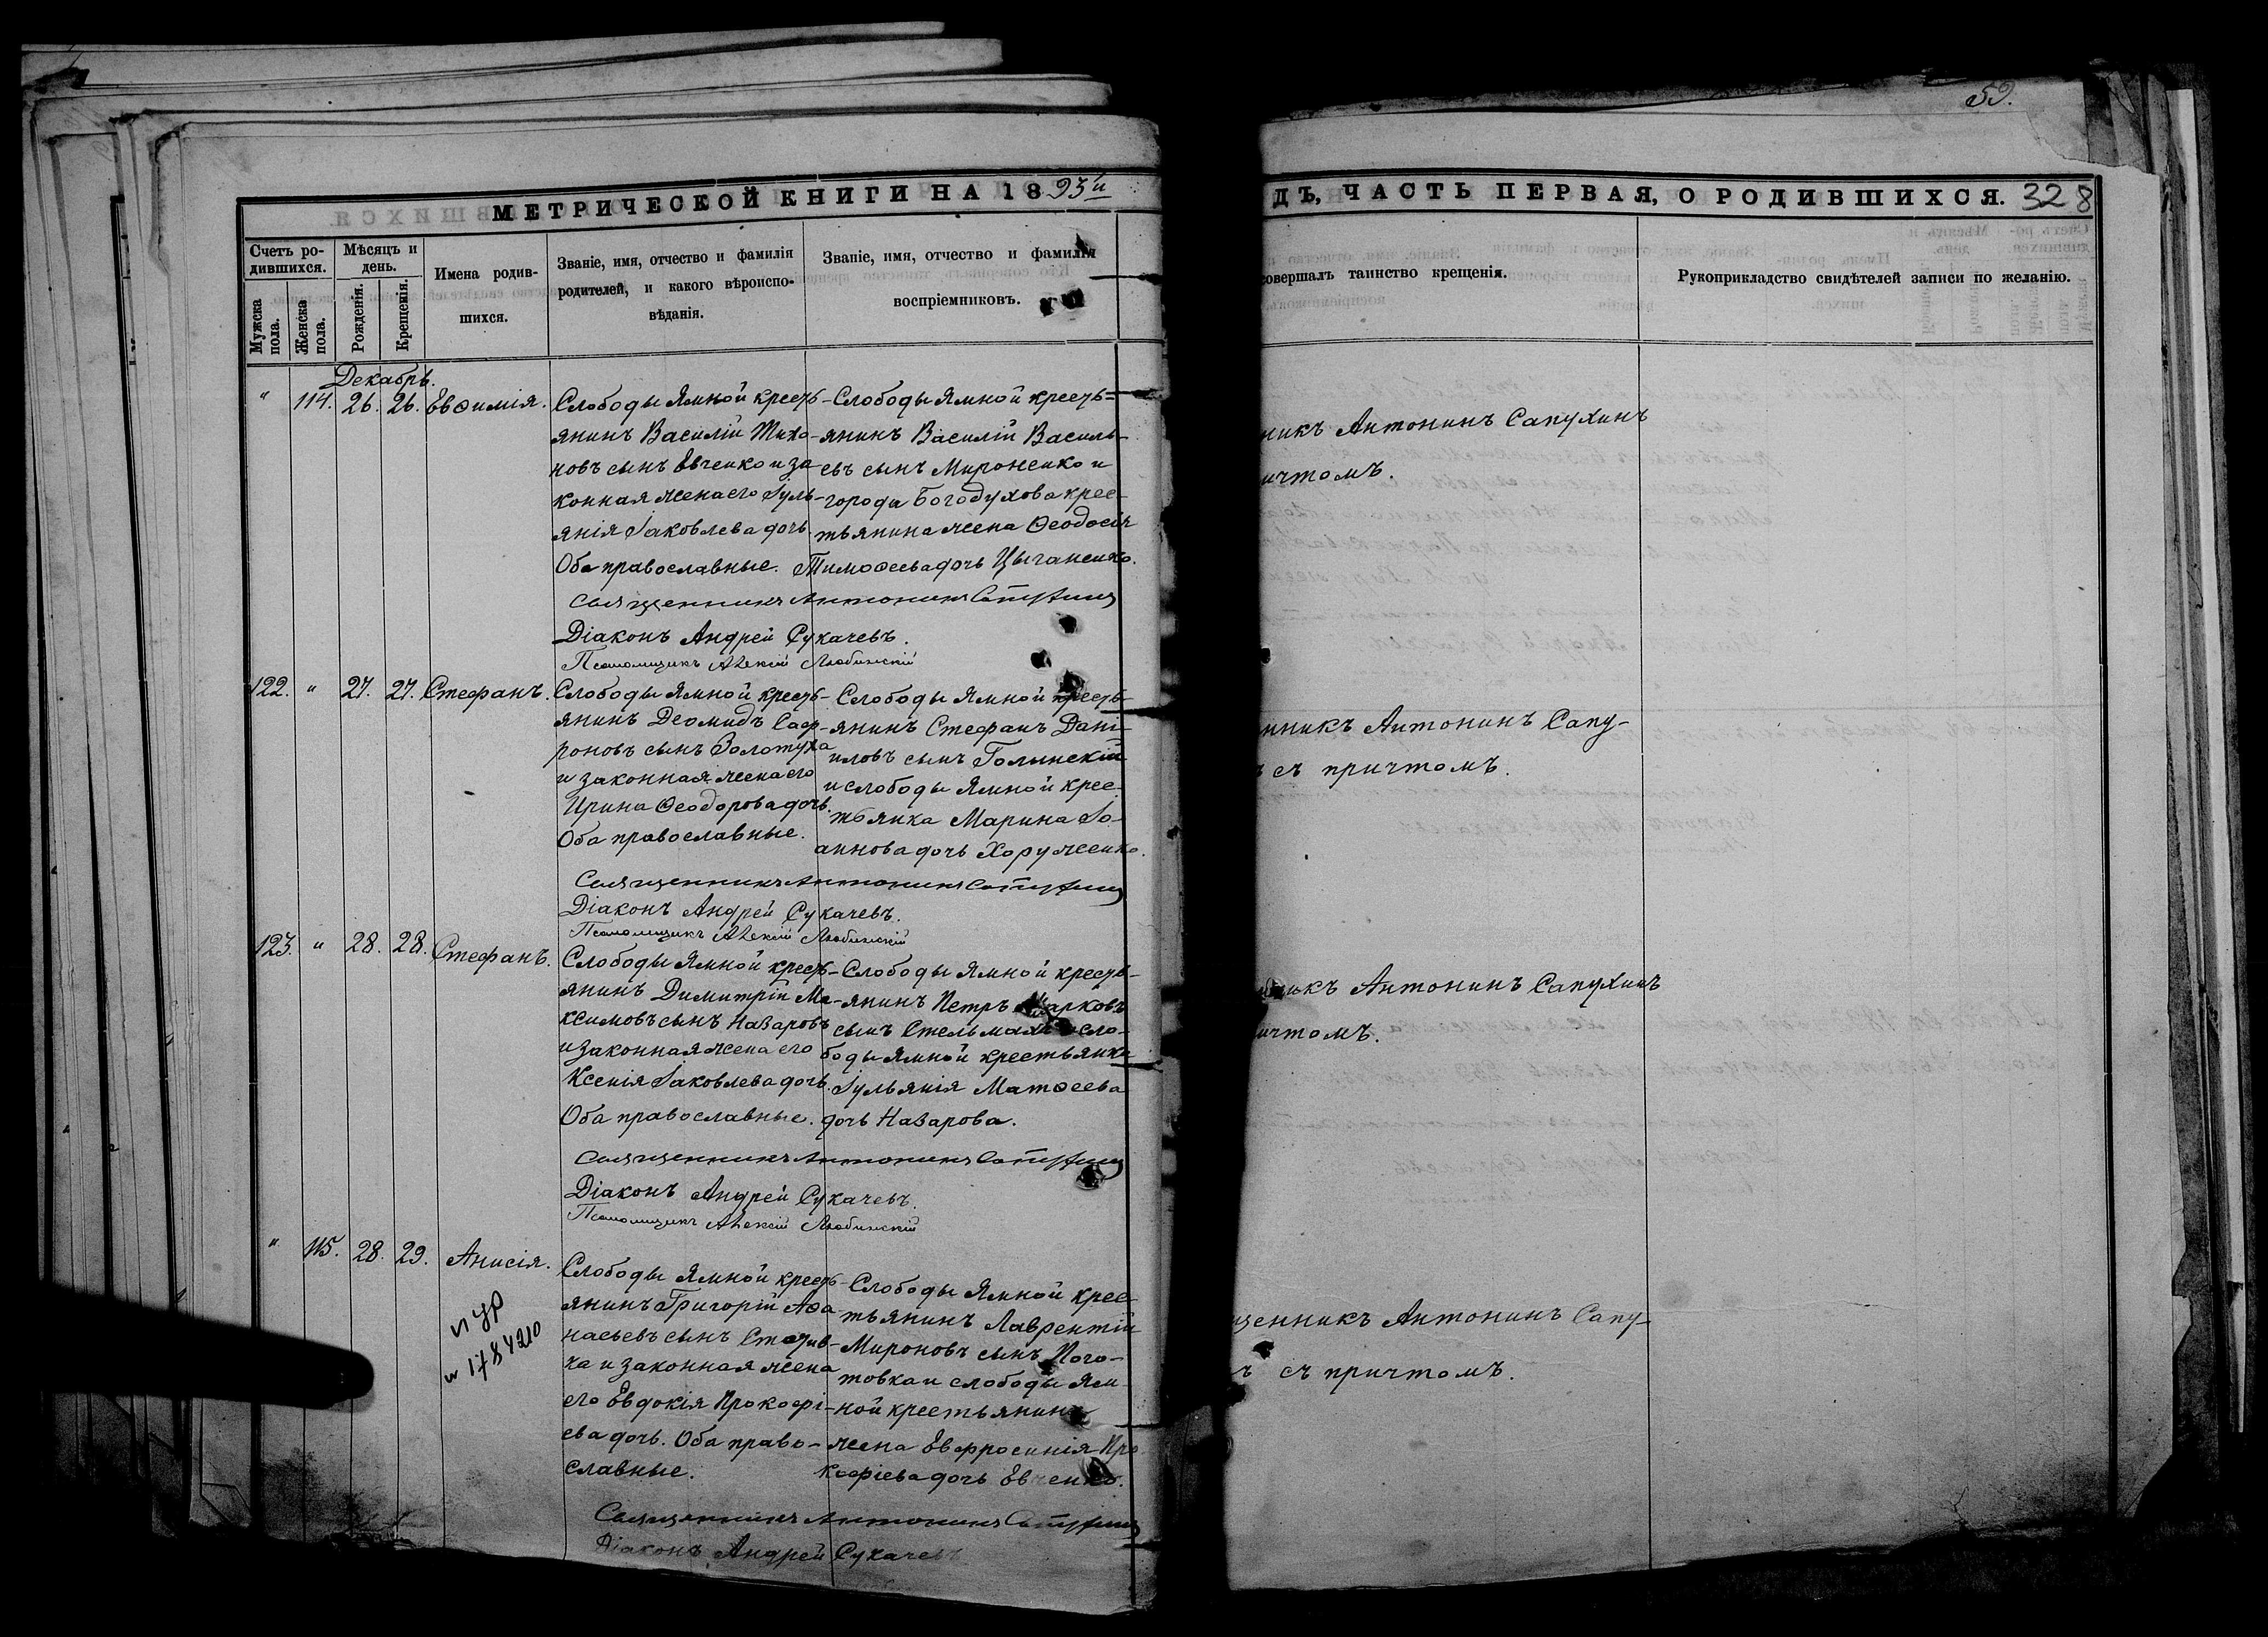 59.
МЕТРИЧЕСКОЙ КНИГИ НА 1893й
ДЪ, ЧАСТЬ ПЕРВАЯ, О РОДИВШИХСЯ. 328
Счетъ ро-
дившихся.
Мужска
пола.
Женска
пола.
Мѣсяцъ и
день.
Рожденія.
Крещенія.
Имена родив-
шихся.
Званіе, имя, отчество и фамилія
родителей, и какого вѣроиспо-
вѣданія.
Званіе, имя, отчество и фамилія
воспріемниковъ.
совершалъ таинство крещенія.
Рукоприкладство свидѣтелей записи по желанію.
Декабрь.
" 114. 26. 26. Евѳимія.
Слободы Ямной кресть-
янинъ Василій Тихо-
новъ сынъ Евченко и за
конная жена его Іуль-
янія Іаковлева дочь.
Оба православные.
Слободы Ямной кресть=
янинъ Василій Василь-
евъ сынъ Мироненко и
города Богодухова крес-
тьянина жена Ѳеодосія
Тимоѳеева дочь Цыганенко.
никъ Антонинъ Сапухинъ
ичтомъ.
Священникъ Антонинъ Сапухинъ
Діаконъ Андрей Сукачевъ.
Псаломщикъ Алексій Любинскій
122. " 27. 27. Стефанъ.
Слободы Ямной кресть-
янинъ Деомидъ Саф-
роновъ сынъ Золотуха
и законная жена его
Ирина Ѳеодорова дочь.
Оба православные.
Слободы Ямной кресть-
янинъ Стефанъ Дані-
иловъ сынъ Голынскій
и слободы Ямной крес-
тьянка Марина Іо-
аннова дочь Хоруженко.
нникъ Антонинъ Сапу-
ъ съ причтомъ.
Священникъ Антонинъ Сапухинъ
Діаконъ Андрей Сукачевъ.
Псаломщикъ Алексій Любинскій
123. " 28. 28. Стефанъ.
Слободы Ямной кресть-
янинъ Димитрій Ма-
ксимовъ сынъ Назаровъ
и законная жена его
Ксенія Іаковлева дочь.
Оба православные.
Слободы Ямной кресть-
янинъ Петръ Марковъ
сынъ Стельмахъ и сло-
боды Ямной крестьянка
Іульянія Матѳеева
дочь Назарова.
никъ Антонинъ Сапухинъ
ичтомъ.
Священникъ Антонинъ Сапухинъ
Діаконъ Андрей Сукачевъ.
Псаломщикъ Алексій Любинскій
" 115. 28. 29. Анисія.
Слободы Ямной кресть-
янинъ Григорій Аѳа-
насьевъ сынъ
ка и законная жена
его Евдокія Прокофі-
ева дочь. Оба право-
славные.
Слободы Ямной крес-
тьянинъ Лаврентій
Мироновъ сынъ Пого-
товка и слободы Ям-
ной крестьянина
жена Евфросинія Про
кофіева дочь Евченко.
щенникъ Антонинъ Сапу-
ъ съ причтомъ.
Священникъ Антонинъ Сапухинъ
Діаконъ Андрей Сукачевъ